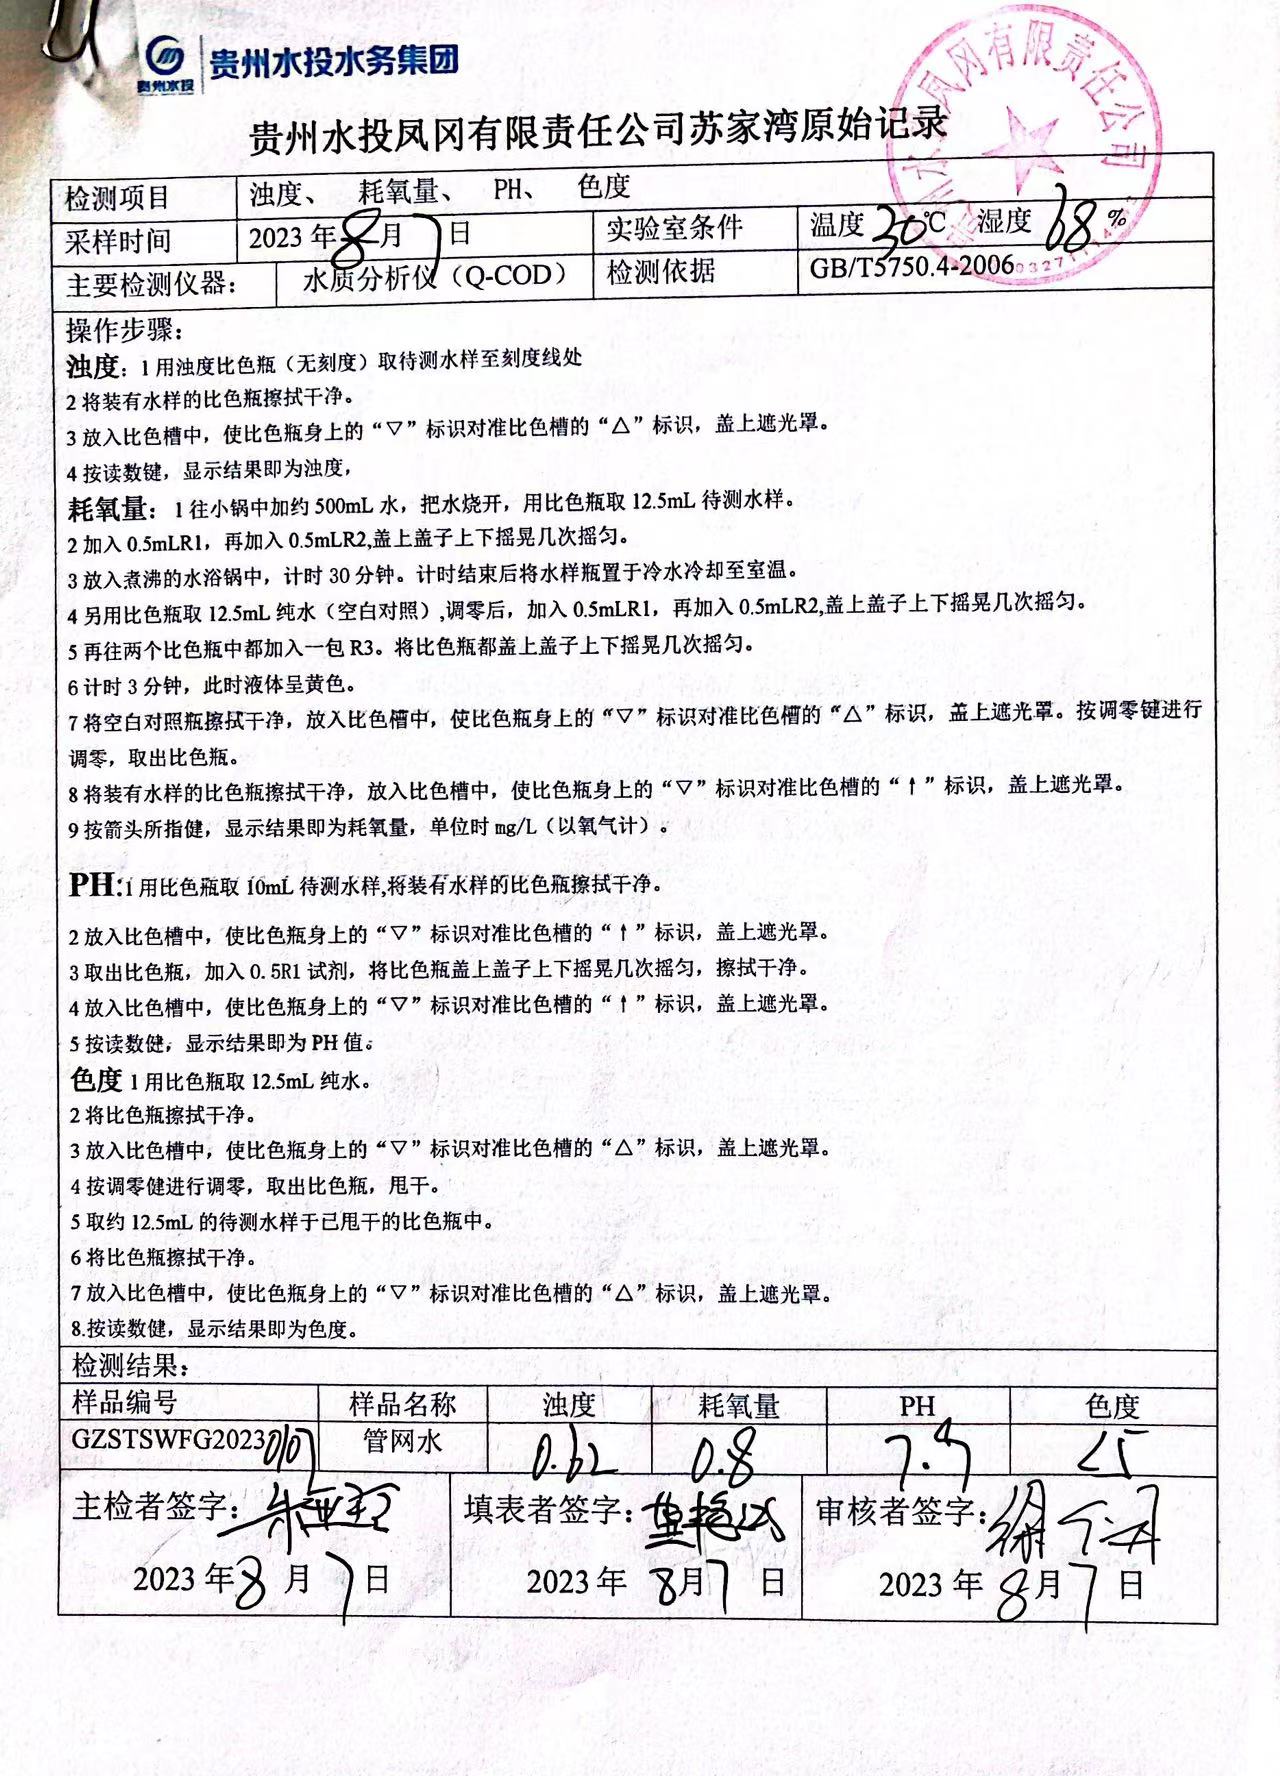 贵州水投
贵州水投水务集团
贵州水投凤冈有限责任公司苏家湾原始记录
检测项目 浊度、 耗氧量、 PH、 色度
采样时间 2023年8月7日 实验室条件 温度30℃ 湿度68%
主要检测仪器: 水质分析仪(Q-COD) 检测依据 GB/T5750.4-2006
操作步骤:
浊度:1用浊度比色瓶(无刻度)取待测水样至刻度线处
2将装有水样的比色瓶擦拭干净。
3放入比色槽中,使比色瓶身上的“▽”标识对准比色槽的“△”标识,盖上遮光罩。
4按读数键,显示结果即为浊度,
耗氧量:1往小锅中加约500mL水,把水烧开,用比色瓶取12.5mL待测水样。
2加入0.5mLR1,再加入0.5mLR2,盖上盖子上下摇晃几次摇匀。
3放入煮沸的水浴锅中,计时30分钟。计时结束后将水样瓶置于冷水冷却至室温。
4另用比色瓶取12.5mL纯水(空白对照),调零后,加入0.5mLR1,再加入0.5mLR2,盖上盖子上下摇晃几次摇匀。
5再往两个比色瓶中都加入一包R3。将比色瓶都盖上盖子上下摇晃几次摇匀。
6计时3分钟,此时液体呈黄色。
7将空白对照瓶擦拭干净,放入比色槽中,使比色瓶身上的“▽”标识对准比色槽的“△”标识,盖上遮光罩。按调零键进行
调零,取出比色瓶。
8将装有水样的比色瓶擦拭干净,放入比色槽中,使比色瓶身上的“▽”标识对准比色槽的“↑”标识,盖上遮光罩。
9按箭头所指健,显示结果即为耗氧量,单位时mg/L(以氧气计)。
PH:1用比色瓶取10mL待测水样,将装有水样的比色瓶擦拭干净。
2放入比色槽中,使比色瓶身上的“▽”标识对准比色槽的“↑”标识,盖上遮光罩。
3取出比色瓶,加入0.5R1试剂,将比色瓶盖上盖子上下摇晃几次摇匀,擦拭干净。
4放入比色槽中,使比色瓶身上的“▽”标识对准比色槽的“↑”标识,盖上遮光罩。
5按读数健,显示结果即为PH值。
色度1用比色瓶取12.5mL纯水。
2将比色瓶擦拭干净。
3放入比色槽中,使比色瓶身上的“▽”标识对准比色槽的“△”标识,盖上遮光罩。
4按调零健进行调零,取出比色瓶,甩干。
5取约12.5mL的待测水样于己甩干的比色瓶中。
6将比色瓶擦拭干净。
7放入比色槽中,使比色瓶身上的“▽”标识对准比色槽的“△”标识,盖上遮光罩。
8.按读数健,显示结果即为色度。
检测结果:
样品编号 样品名称 浊度 耗氧量 PH 色度
GZSTSWFG20230107 管网水 0.62 0.8 <5
主检者签字: 填表者签字: 审核者签字:
2023年8月7日 2023年8月7日 2023年8月7日